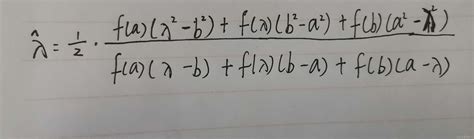 λ̂ = 1/2 · (f(a)(λ²-b²) + f(λ)(b²-a²) + f(b)(a²-λ²)) / (f(a)(λ-b) + f(λ)(b-a) + f(b)(a-λ))